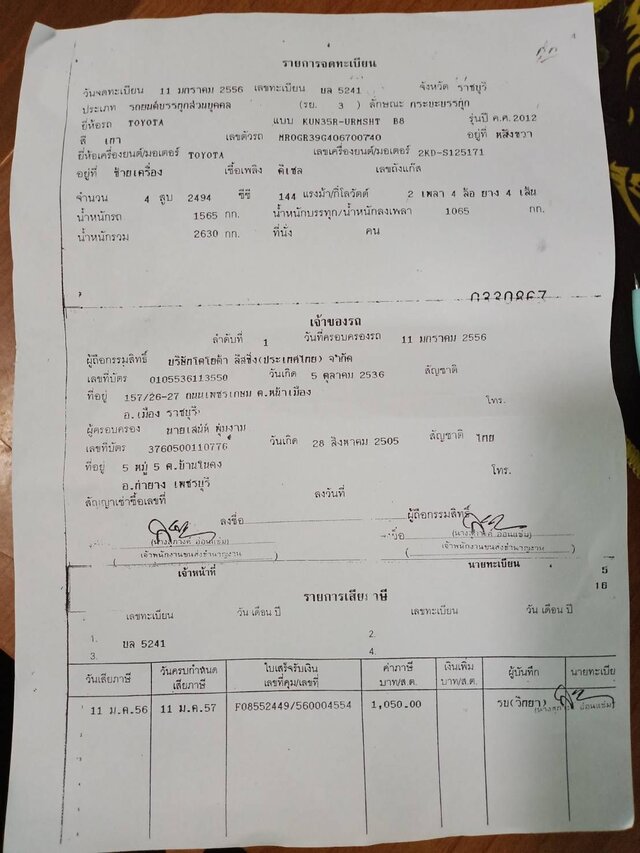 รายการจดทะเบียน
วันจดทะเบียน 11 มกราคม 2556 เลขทะเบียน บล 5241 จังหวัด ราชบุรี
ประเภท รถยนต์บรรทุกส่วนบุคคล (รย. 3 ) ลักษณะ กระบะบรรทุก
ยี่ห้อรถ TOYOTA แบบ KUN35R-URMSHT B8 รุ่นปี ค.ศ. 2012
สี เทา เลขตัวรถ MR0GR39G406700740 อยู่ที่ หลังขวา
ยี่ห้อเครื่องยนต์/มอเตอร์ TOYOTA เลขเครื่องยนต์/มอเตอร์ 2KD-S125171
อยู่ที่ ซ้ายเครื่อง เชื้อเพลิง ดีเซล เลขถังแก๊ส
จำนวน 4 สูบ 2494 ซีซี 144 แรงม้า/กิโลวัตต์ 2 เพลา 4 ล้อ ยาง 4 เส้น
น้ำหนักรถ 1565 กก. น้ำหนักบรรทุก/น้ำหนักลงเพลา 1065 กก.
น้ำหนักรวม 2630 กก. ที่นั่ง คน
0330867
เจ้าของรถ
ลำดับที่ 1 วันที่ครอบครองรถ 11 มกราคม 2556
ผู้ถือกรรมสิทธิ์ บริษัทโตโยต้า ลีสซิ่ง(ประเทศไทย) จำกัด
เลขที่บัตร 0105536113550 วันเกิด 5 ตุลาคม 2536 สัญชาติ
ที่อยู่ 157/26-27 ถนนเพชรเกษม ต.หน้าเมือง โทร.
อ.เมือง ราชบุรี
ผู้ครอบครอง นายเสน่ห์ พุ่มงาม
เลขที่บัตร 3760500110776 วันเกิด 28 สิงหาคม 2505 สัญชาติ ไทย
ที่อยู่ 5 หมู่ 5 ต.บ้านในดง โทร.
อ.ท่ายาง เพชรบุรี
สัญญาเช่าซื้อเลขที่ ลงวันที่
ลงชื่อ ผู้ถือกรรมสิทธิ์
เจ้าพนักงานขนส่งชำนาญงาน เจ้าพนักงานขนส่งชำนาญงาน
เจ้าหน้าที่ นายทะเบียน 5
16
รายการเสียภาษี
เลขทะเบียน วัน เดือน ปี เลขทะเบียน วัน เดือน ปี
1. บล 5241 2.
3. 4.
วันเสียภาษี วันครบกำหนดเสียภาษี ใบเสร็จรับเงิน เลขที่คุม/เลขที่ ค่าภาษี บาท/ส.ต. เงินเพิ่ม บาท/ส.ต. ผู้บันทึก นายทะเบีย
11 ม.ค.56 11 ม.ค.57 F08552449/560004554 1,050.00 รบ(วิทยา)